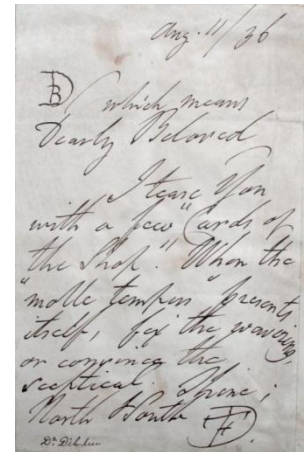 Aug. 11/36
DB which means
Dearly Beloved
I tease you
with a few "Cards of
the Shop." When the
"molle tempus" presents
itself, fix the wavering,
or convince the
sceptical.
North & South